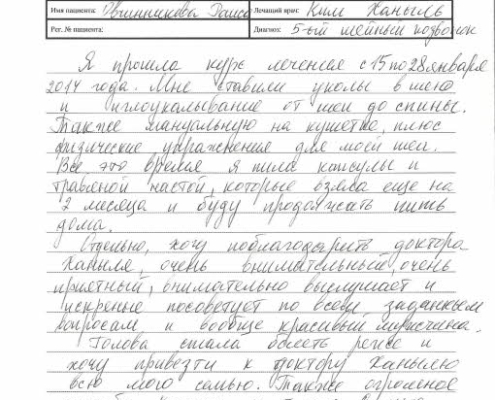 Имя пациента: Овчинникова Раиса Лечащий врач: Ким Ханыль
Рег. № пациента: Диагноз: 5-ый шейный позвонок
Я прошла курс лечения с 15 по 28 января
2014 года. Мне ставили уколы в шею
и иглоукалывание от шеи до спины.
Также мануальную на кушетке, плюс
физические упражнения для моей шеи.
Все это время я пила капсулы и
травяной настой, которые взяла еще на
2 месяца и буду продолжать пить
дома.
Отдельно, хочу поблагодарить доктора
Ханыля, очень внимательный, очень
приятный, внимательно выслушает и
искренне посоветует по всем заданным
вопросам и вообще красивый мужчина.
Голова стала болеть реже и
хочу привезти к доктору Ханылю
всю мою семью. Также огромное